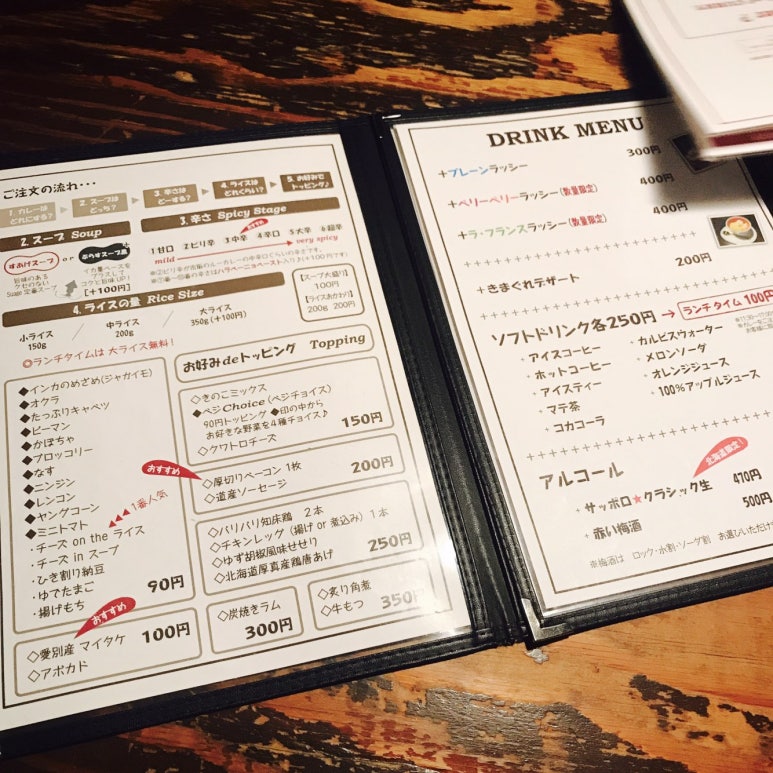 ご注文の流れ・・・
1. カレーは
どれにする?
2. スープは
どっち?
3. 辛さは
どーする?
4. ライスは
どれくらい?
5. お好みで
トッピング♪
2. スープ Soup
すあげスープ
or
ぷらすスープ黒
旨味のある
クセのない
Suage 定番スープ
イカ墨ベースを
プラスして
コクと旨味UP!
[+100円]
3. 辛さ Spicy Stage
おすすめ
1甘口 2ピリ辛 3中辛 4辛口 5大辛 6超辛
mild
very spicy
4. ライスの量 Rice Size
小ライス
150g
中ライス
200g
大ライス
350g (+100円)
[スープ大盛り]
100円
[ライスおかわり]
200g 200円
◎ランチタイムは 大ライス無料!
◆インカのめざめ(ジャガイモ)
◆オクラ
◆たっぷりキャベツ
◆ピーマン
◆かぼちゃ
◆ブロッコリー
◆なす
◆ニンジン
◆レンコン
◆ヤングコーン
◆ミニトマト
1番人気
・チーズ on the ライス
・チーズ in スープ
・ひき割り納豆
・ゆでたまご
・揚げもち
90円
おすすめ
◇愛別産 マイタケ
◇アボカド
100円
お好みdeトッピング Topping
◇きのこミックス
◆ベジChoice (ベジチョイス)
90円トッピング ◆印の中から
お好きな野菜を4種チョイス♪
◇クワトロチーズ
150円
おすすめ
◇厚切りベーコン 1枚
◇道産ソーセージ
200円
◇パリパリ知床鶏 2本
◇チキンレッグ (揚げ or 煮込み) 1本
◇ゆず胡椒風味せせり
◇北海道厚真産鶏唐あげ
250円
◇炭焼きラム
300円
◇炙り角煮
◇牛もつ
350円
DRINK MENU
+プレーンラッシー
300円
+ベリーベリーラッシー(数量限定)
400円
+ラ・フランスラッシー(数量限定)
400円
+きまぐれデザート
200円
ソフトドリンク各250円→
ランチタイム 100円
・アイスコーヒー
・ホットコーヒー
・アイスティー
・マテ茶
・コカコーラ
・カルピスウォーター
・メロンソーダ
・オレンジジュース
・100%アップルジュース
アルコール
北海道限定!
+サッポロ★クラシック生
470円
+赤い梅酒
500円
※梅酒は ロック・水割・ソーダ割 お選びいただけ